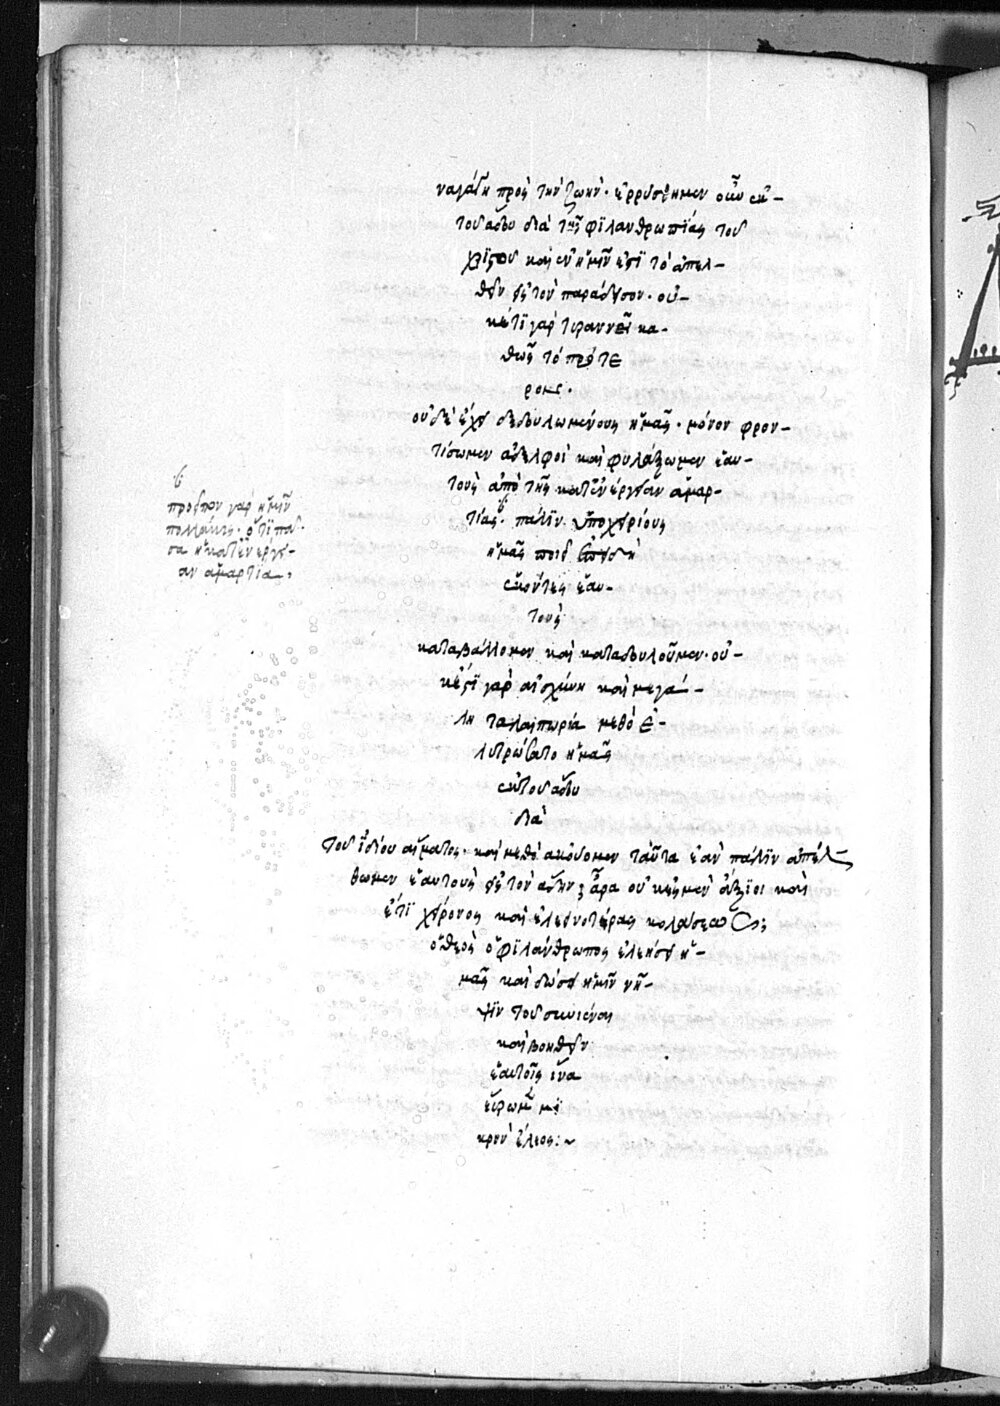 ναγάγῃ πρὸς τὴν ζωὴν· ἐρρύσθημεν οὖν ἐκ
τοῦ ἅδου διὰ τῆς φϊλανθρωπΐας τοῦ
χϊστοῦ καὶ ἐν ἡμῖν ἐστῒ τὸ ἀπελ-
θεῖν εἰς τὸν παράδεισον· οὐ-
κέτϊ γὰρ τυραννεῖ κα-
θὼς τὸ πρότε
ρον·
οὐδὲ ἔχει δεδουλωμένους ἡμᾶς· μόνον φρον-
τίσωμεν ἀδελφοὶ καὶ φυλάξωμεν ἑαυ-
τοὺς ἀπὸ τῆς κατενέργειαν ἁμαρ-
τίας· πάλϊν ὑποχειρίους
ἡμᾶς ποιεῖ
ἑκόντες ἑαυ-
τοὺς
καταβάλλομεν καὶ καταδουλοῦμεν· οὐ-
κ ἔστϊ γὰρ αἰσχύνη καὶ μεγά-
λη ταλαιπωρία μεθὸ ἐ-
λυτρώσατο ἡμᾶς
ἐκ τοῦ ἅδου
διὰ
τοῦ ἰδίου αἵματος· καὶ μεθὸ ἀκούομεν ταῦτα ἐὰν πάλϊν ἀπέλ-
θωμεν ἑαυτοὺς εἰς τὸν ἅδην; ἆρα οὐκ ἐσμὲν ἄξϊοι καὶ
ἔτϊ χείρονος καὶ ἐλεεινοτέρας κολάσεως;
ὁ θεὸς ὁ φϊλάνθρωπος ἐλεήσει ἡ-
μᾶς καὶ δώσει ἡμῖν νῆ-
ψϊν τοῦ συνιέναι
καὶ βοηθεῖν
ἑαυτοῖς ἵνα
εὕρωμεν μϊ
κρὸν ἔλεος:~
προεῖπον γὰρ ἡμῖν
πολλάκις· ὅτϊ πᾶ
σα ἡ κατενέργει-
αν ἁμαρτία·